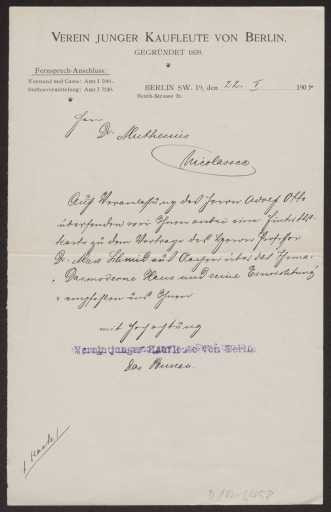 VEREIN JUNGER KAUFLEUTE VON BERLIN.
GEGRÜNDET 1839.
Fernsprech-Anschluss:
Vorstand und Casse: Amt I
Stellenvermittelung: Amt I
BERLIN SW. 19, den 22. I 190
Beuth-Strasse 20.
Herrn
Dr. Muthesius
Nicolassee
Auf Veranlassung des Herrn Adolf Otto
übersenden wir Ihnen anbei eine Eintritts-
karte zu dem Vortrage des Herrn Professor
Dr. Max Schmid aus Aachen über das Thema
„Das moderne Haus und seine Einrichtung"
& empfehlen uns Ihnen
mit Hochachtung
Verein junger Kaufleute von Berlin
das Bureau.
1 Karte